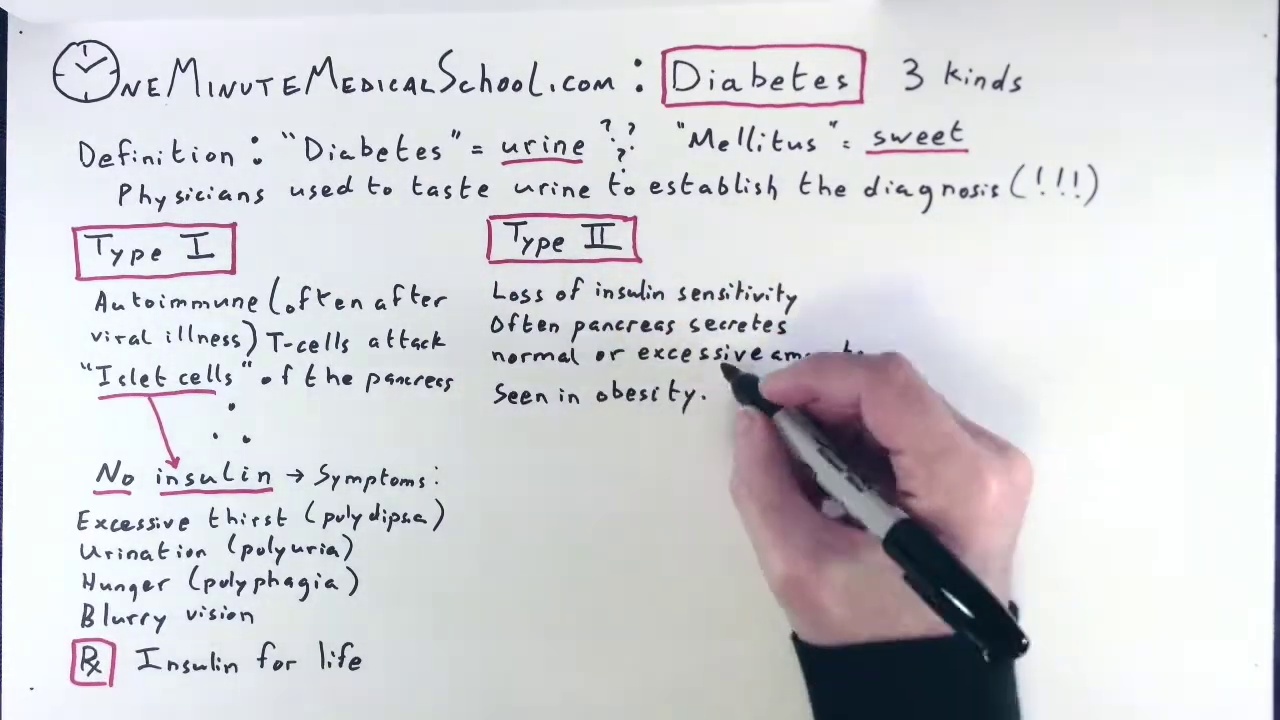 OneMinuteMedicalSchool.com : Diabetes 3 kinds
Definition : "Diabetes" = urine ? ? ? "Mellitus" = sweet
Physicians used to taste urine to establish the diagnosis (!!!)
Type I
Autoimmune (often after
viral illness) T-cells attack
"Islet cells" of the pancreas
No insulin → Symptoms:
Excessive thirst (polydipsia)
Urination (polyuria)
Hunger (polyphagia)
Blurry vision
Rx Insulin for life
Type II
Loss of insulin sensitivity
Often pancreas secretes
normal or excessive
Seen in obesity.